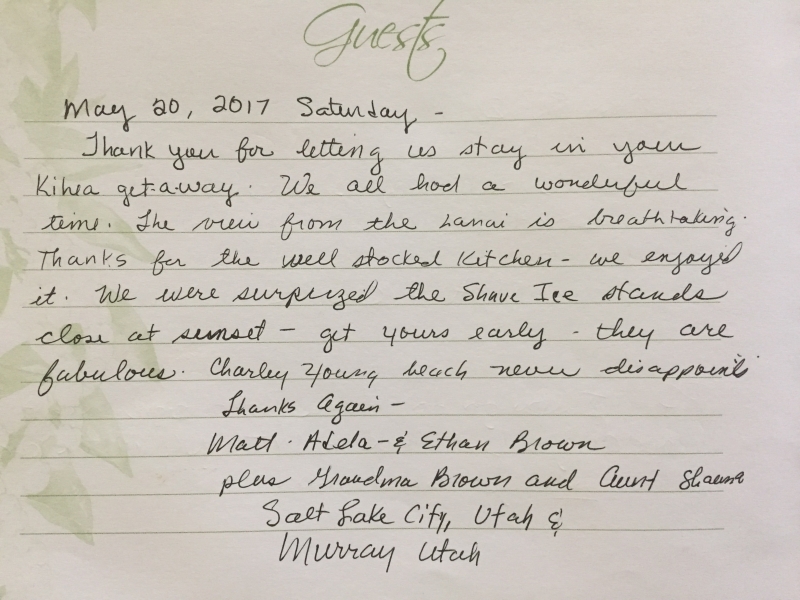 Guests
May 20, 2017 Saturday -
Thank you for letting us stay in your
Kihea get-a-way. We all had a wonderful
time. The view from the Lanai is breathtaking.
Thanks for the well stocked Kitchen - we enjoyed
it. We were surprized the Shave Ice stands
close at sunset - get yours early - they are
fabulous. Charley Young beach never disappoints
Thanks Again -
Matt - Adela - & Ethan Brown
plus Grandma Brown and Aunt Shauna
Salt Lake City, Utah &
Murray Utah